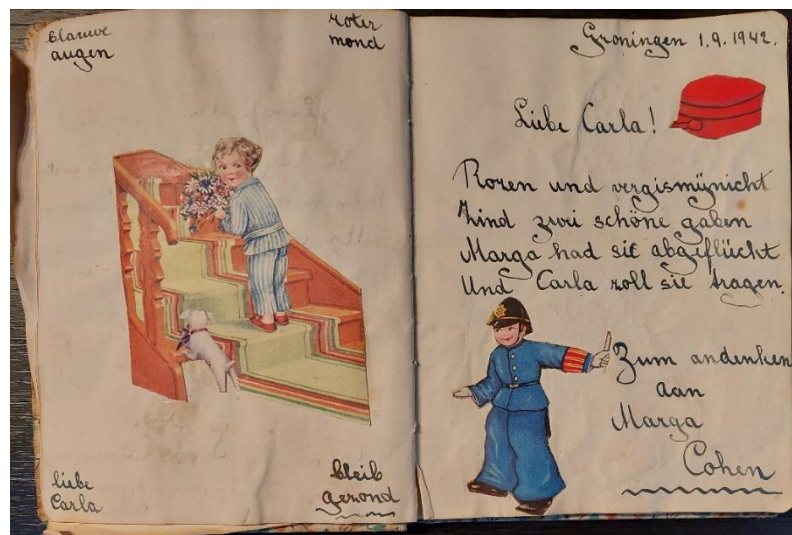 blauwe
augen
roter
mond
liebe
Carla
bleib
gezond
Groningen 1.9.1942.
Liebe Carla!
Rozen und vergismijnicht
Zind zwei schöne gaben
Marga had sie abgeflückt
Und Carla zoll sie tragen.
Zum andenken
aan
Marga
Cohen